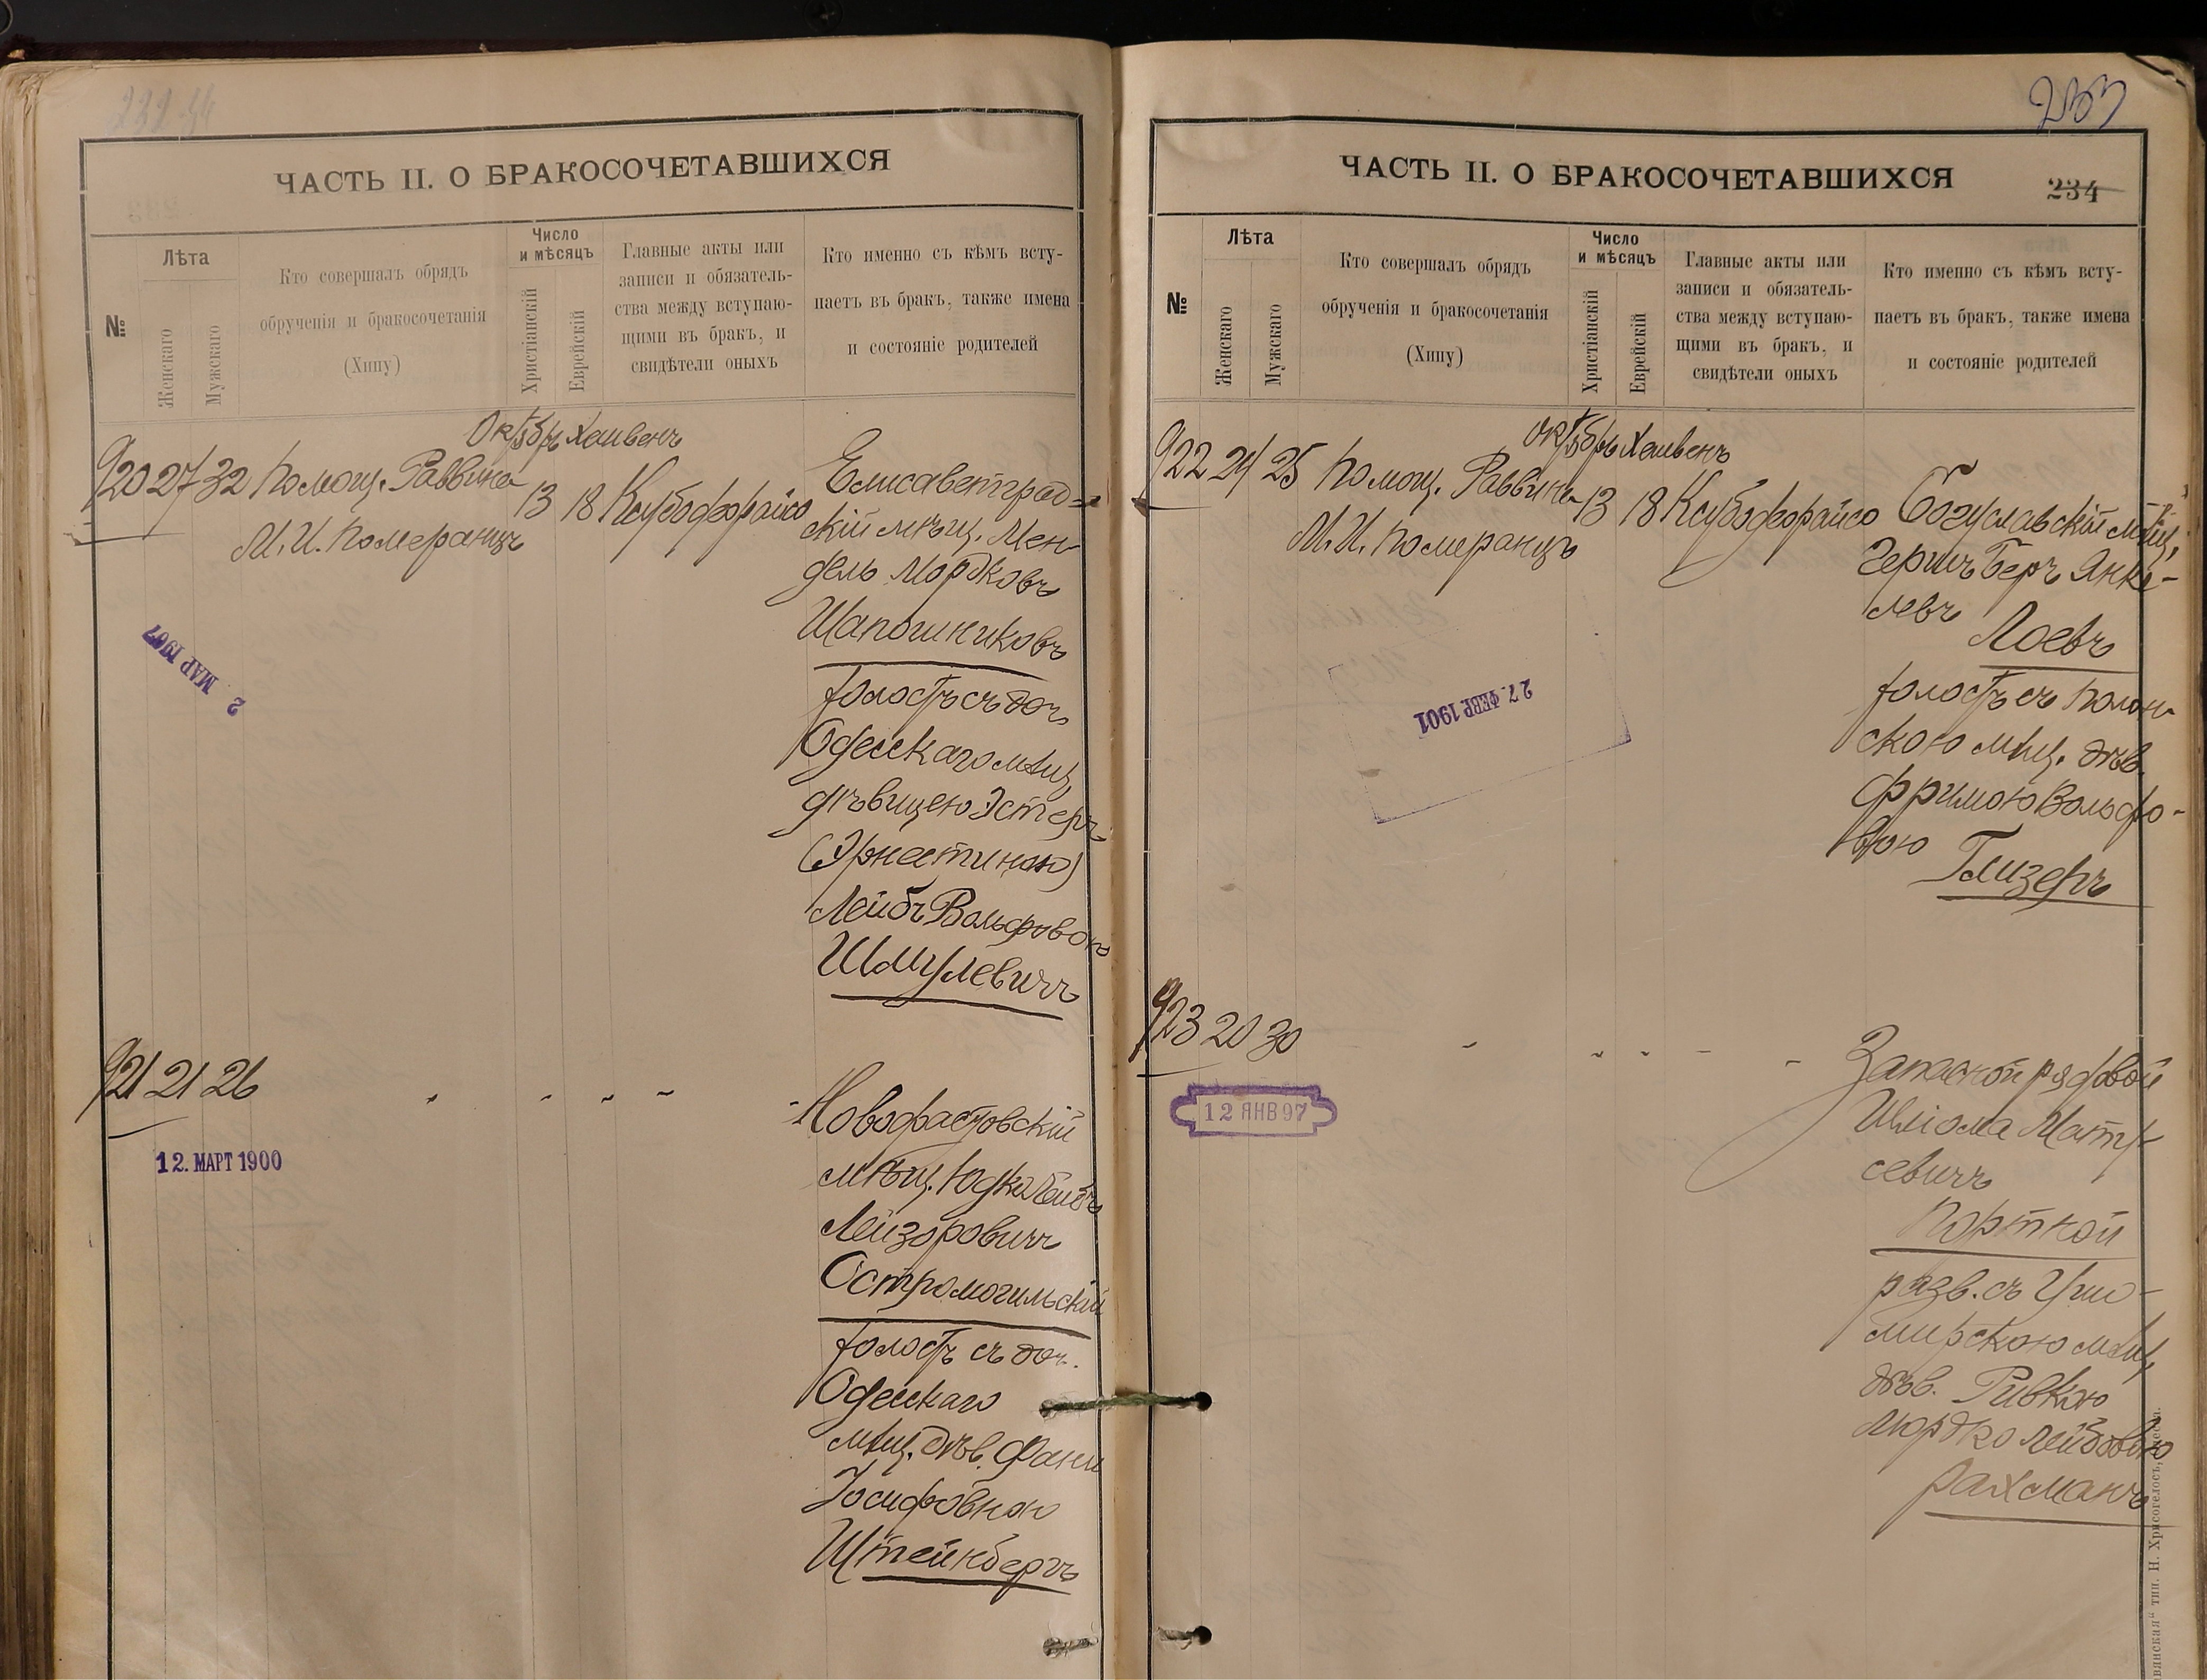 ЧАСТЬ II. О БРАКОСОЧЕТАВШИХСЯ
№
Лѣта
Женскаго
Мужскаго
Кто совершалъ обрядъ
обрученія и бракосочетанія
(Хипу)
Число
и мѣсяцъ
Христіанскій
Еврейскій
Главные акты или
записи и обязатель-
ства между вступаю-
щими въ бракъ, и
свидѣтели оныхъ
Кто именно съ кѣмъ всту-
паетъ въ бракъ, также имена
и состояніе родителей
Октябрь Хешвенъ
920 27 32 Помощ. Раввина 13 18
М. И. Померанцъ
Елисаветград-
скій мѣщ. Мен-
дель Мордковъ
Шапошниковъ
холостъ съ доч.
Одесскаго мѣщ.
дѣвицею Эстеръ
(Эрнестиною)
Лейбъ Вольфовою
Шмулевичъ
2 МАР 1907
921 21 26 " " " "
12. МАРТ 1900
Новофастовскій
мѣщ. Юдко Лейбъ
Лейзоровичъ
Остромогильскій
холостъ съ доч.
Одесскаго
мѣщ. дѣв. Фани
Іосифовною
Штейнбергъ
233
ЧАСТЬ II. О БРАКОСОЧЕТАВШИХСЯ
234
№
Лѣта
Женскаго
Мужскаго
Кто совершалъ обрядъ
обрученія и бракосочетанія
(Хипу)
Число
и мѣсяцъ
Христіанскій
Еврейскій
Главные акты или
записи и обязатель-
ства между вступаю-
щими въ бракъ, и
свидѣтели оныхъ
Кто именно съ кѣмъ всту-
паетъ въ бракъ, также имена
и состояніе родителей
Октябрь Хешвенъ
922 24 25 Помощ. Раввина 13 18
М. И. Померанцъ
Богуславскій мѣщ.
Гершъ Беръ Янке-
левъ
Лоевъ
холостъ съ Полон-
скою мѣщ. дѣв.
Фримою Вольфо-
вою
Глизеръ
27. ФЕВР. 1901
923 20 30 " " " " "
12 ЯНВ 97
Запасной рядовой
Шлома Мату-
севичъ
Порткой
разв. съ
мирскою мѣщ.
дѣв. Ривкою
Мордко Лейбовою
Рахманъ
тип. Н. Хрисогелосъ,